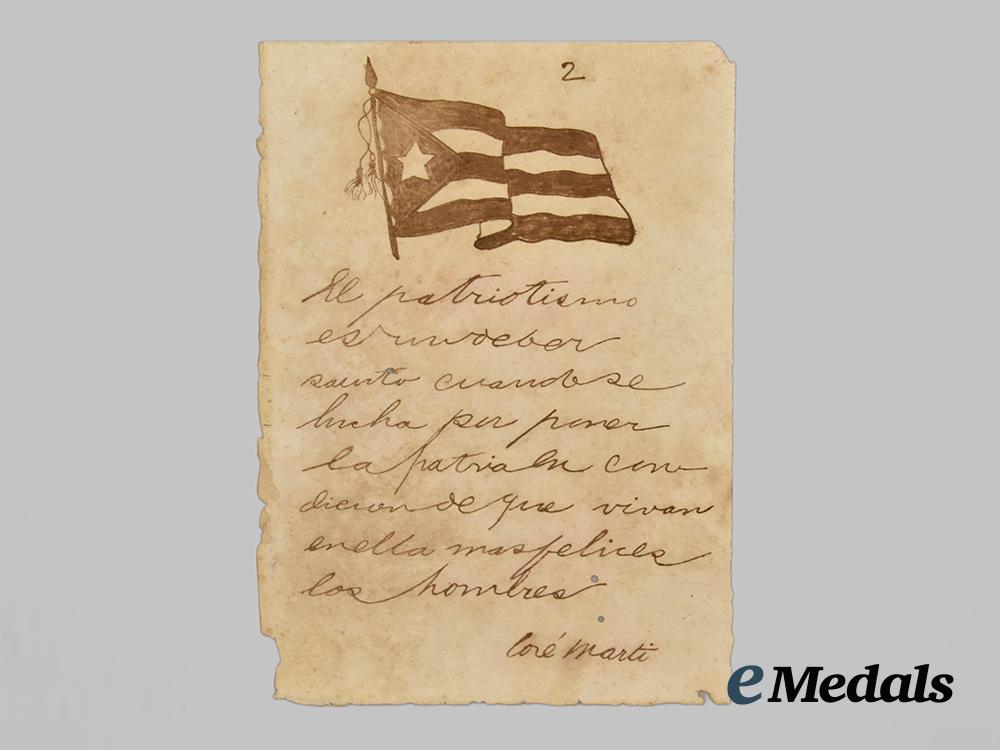 2
El patriotismo
es un deber
santo cuando se
lucha por poner
la patria en con
dicion de que vivan
en ella mas felices
los hombres
José Marti
eMedals